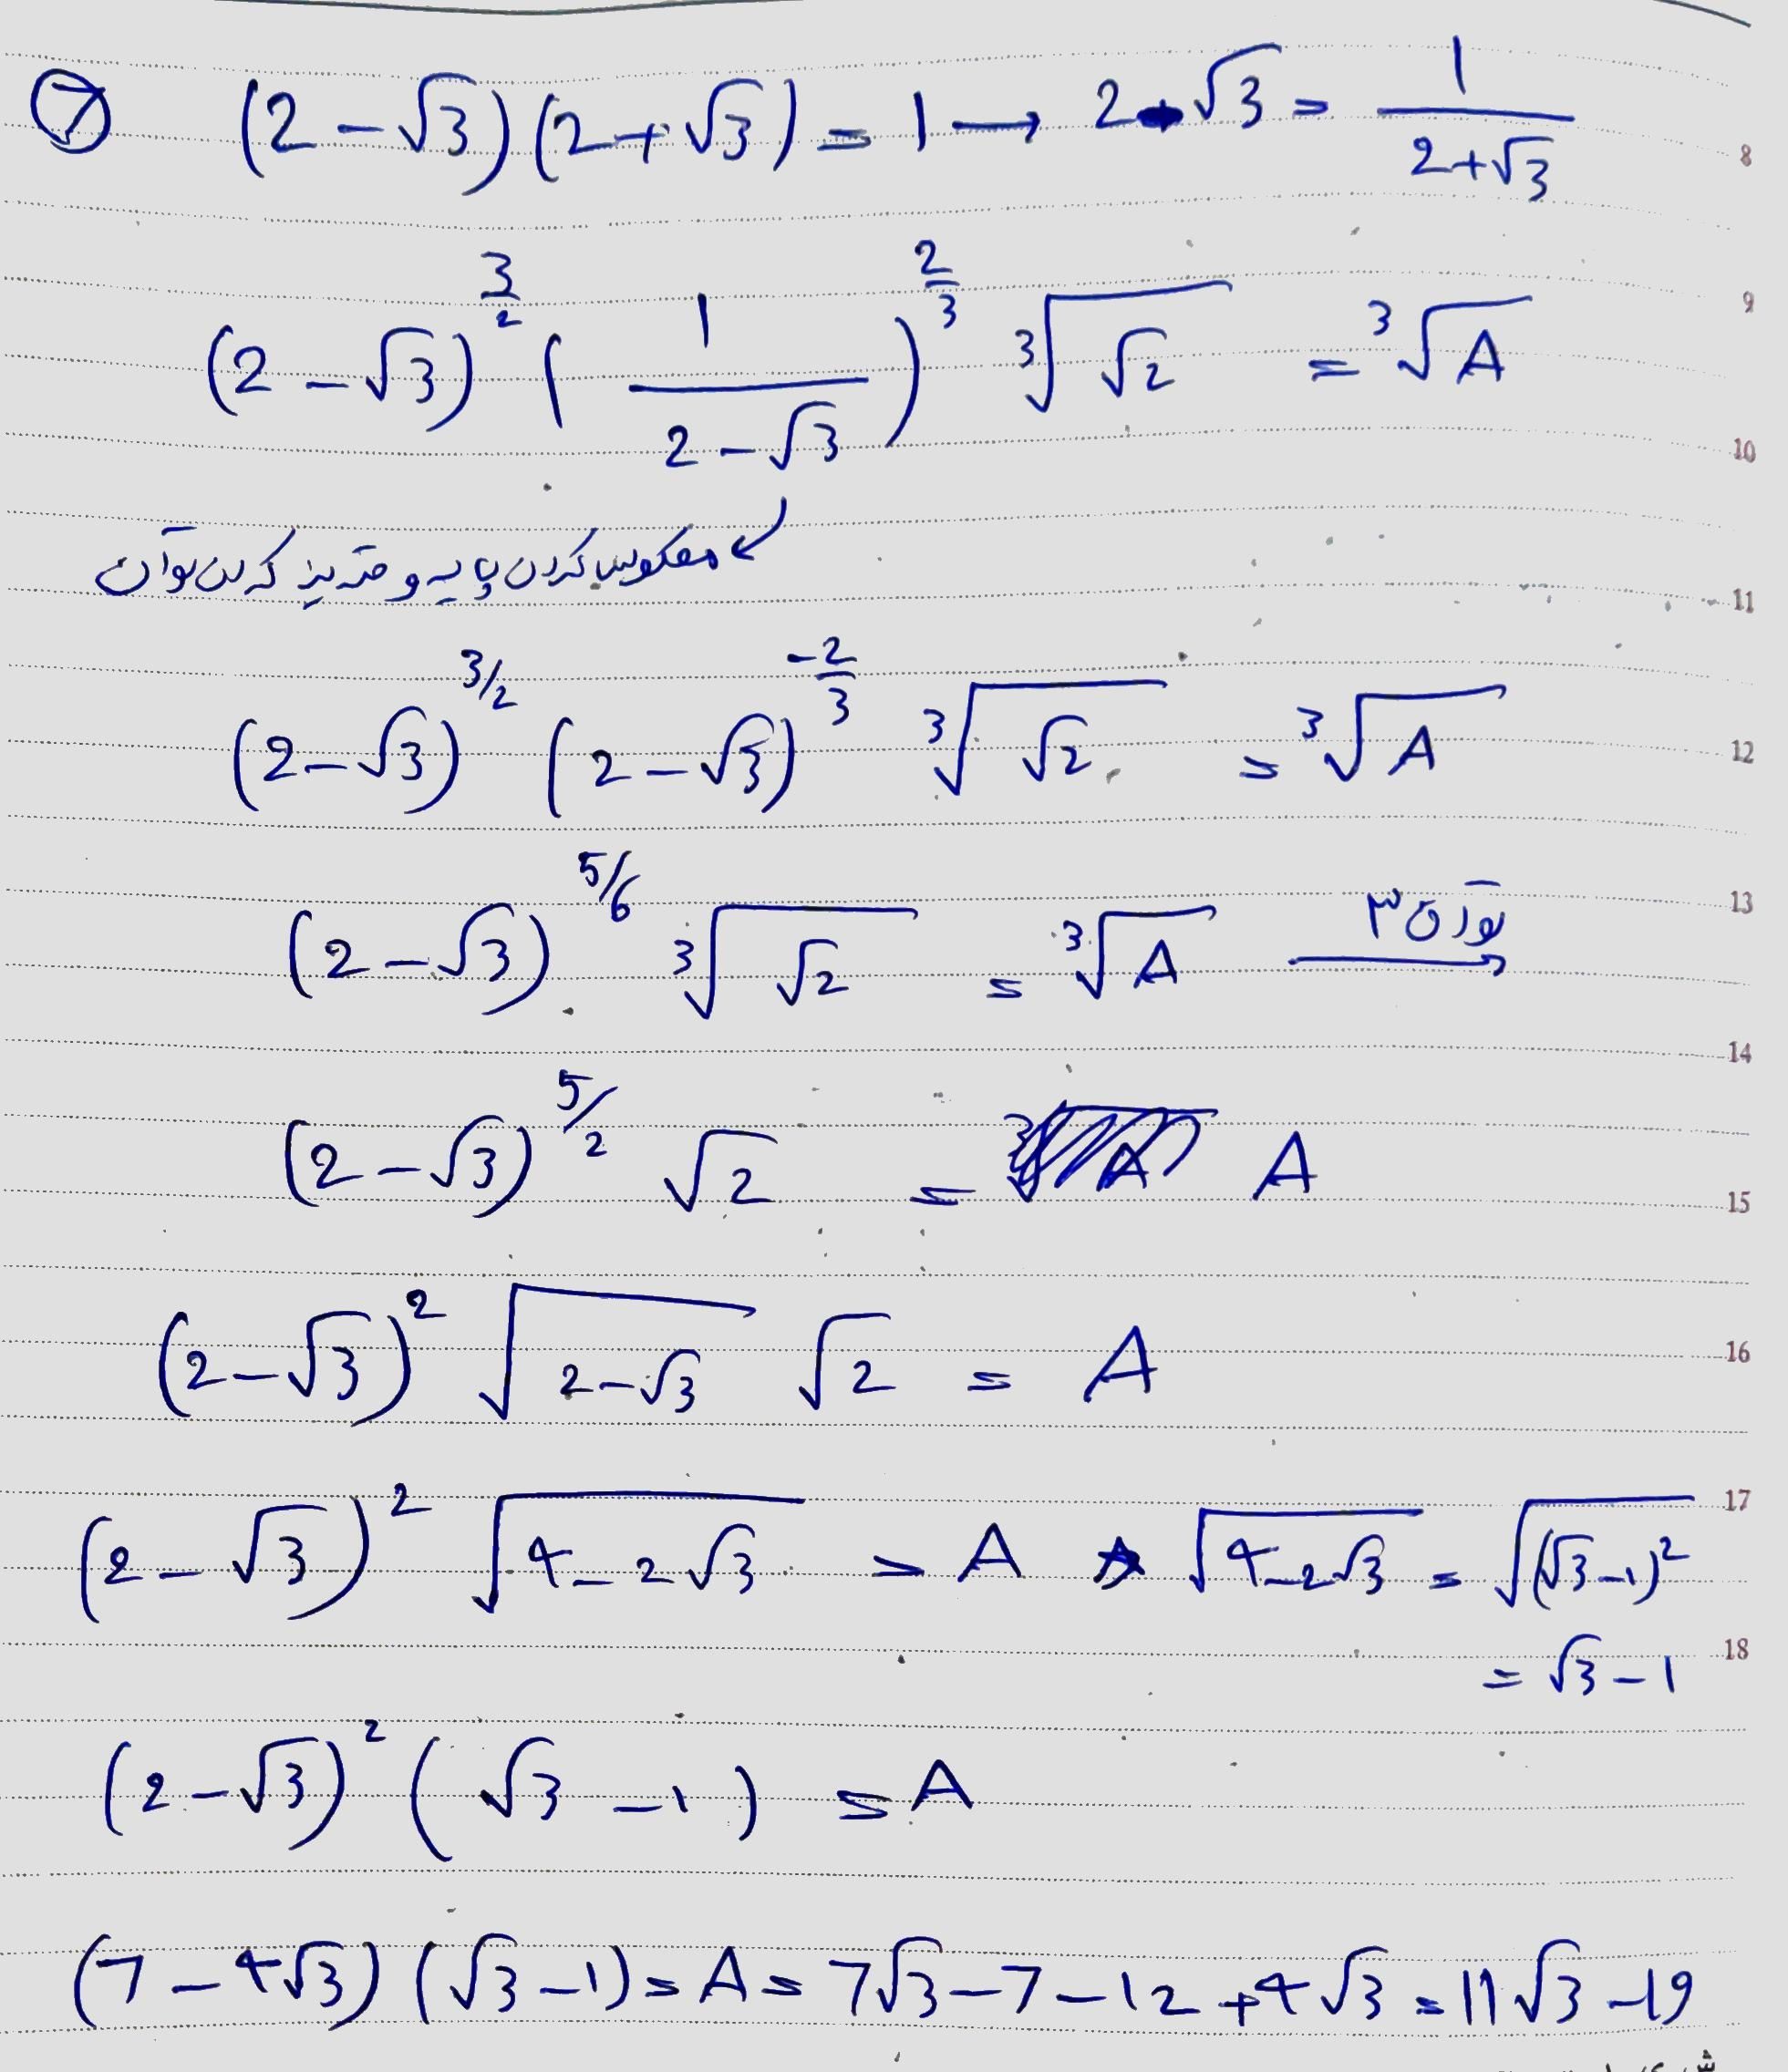 ⑦ (2-√3)(2+√3) = 1 → 2-√3 = 1/(2+√3)
8
(2-√3)^(3/2) (1/(2-√3))^(2/3) ∛(√2) = ∛A
9
10
معکوس کردن پایه و قرینه کردن توان
11
(2-√3)^(3/2) (2-√3)^(-2/3) ∛(√2) = ∛A
12
(2-√3)^(5/6) ∛(√2) = ∛A توان ۳ →
13
14
(2-√3)^(5/2) √2 = A
15
(2-√3)^2 √(2-√3) √2 = A
16
(2-√3)^2 √(4-2√3) = A √(4-2√3) = √((√3-1)^2)
17
= √3-1
18
(2-√3)^2 (√3-1) = A
(7-4√3)(√3-1) = A = 7√3-7-12+4√3 = 11√3-19